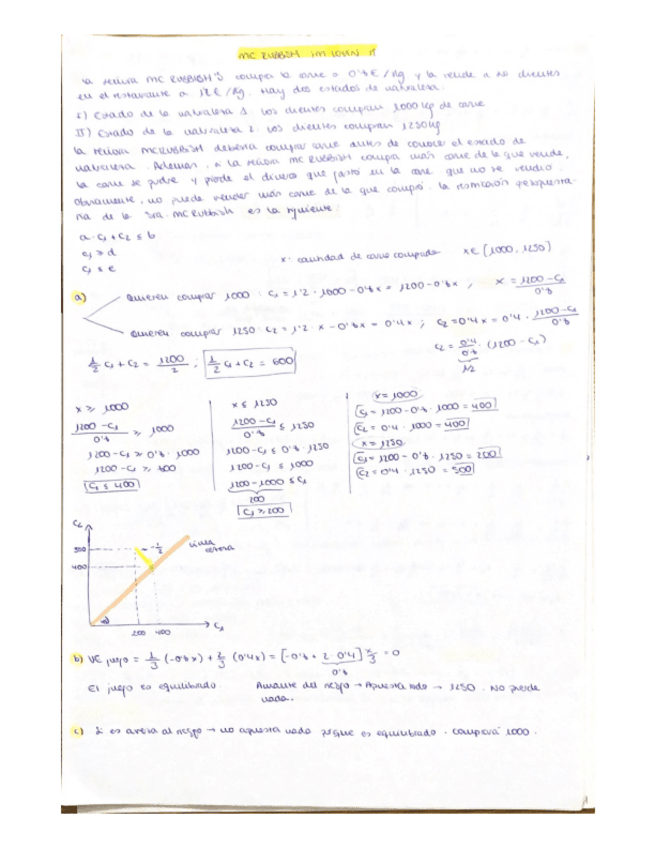 MC RUBBISH im LOVIN it
La señora MC RUBBISH'S compra la carne a 0'8€/kg y la vende a los clientes
en el restaurante a 1'2€/kg. Hay dos estados de naturaleza.
I) Estado de la naturaleza 1: Los clientes compran 1000 kg de carne
II) Estado de la naturaleza 2: Los clientes compran 1250 kg
La señora MCRUBBISH debería comprar carne antes de conocer el estado de
naturaleza. Además, si la señora MC RUBBISH compra más carne de la que vende,
la carne se pudre y pierde el dinero que gastó en la carne que no se vendió.
Obviamente, no puede vender más carne de la que compró. La restricción presupuesta-
ria de la Sra. MC Rubbish es la siguiente:
a·C₁ + C₂ ≤ b
C₁ ≥ d
C₁ ≤ e
x: cantidad de carne comprada x ∈ (1000, 1250)
a)
Quieren comprar 1000: C₁ = 1'2 · 1000 − 0'8x = 1200 − 0'8x ; x = (1200 − C₁)/0'8
Quieren comprar 1250: C₂ = 1'2 · x − 0'8x = 0'4x ; C₂ = 0'4x = 0'4 · (1200 − C₁)/0'8
C₂ = 0'4/0'8 · (1200 − C₁)
1/2
1/2 C₁ + C₂ = 1200/2 ; 1/2 C₁ + C₂ = 600
x ≥ 1000
(1200 − C₁)/0'8 ≥ 1000
1200 − C₁ ≥ 0'8 · 1000
1200 − C₁ ≥ 800
C₁ ≤ 400
x ≤ 1250
(1200 − C₁)/0'8 ≤ 1250
1200 − C₁ ≤ 0'8 · 1250
1200 − C₁ ≤ 1000
1200 − 1000 ≤ C₁
200
C₁ ≥ 200
x = 1000
C₁ = 1200 − 0'8 · 1000 = 400
C₂ = 0'4 · 1000 = 400
x = 1250
C₁ = 1200 − 0'8 · 1250 = 200
C₂ = 0'4 · 1250 = 500
C₂
500
400
− 1/2
línea
certeza
200 400
C₁
b) VE juego = 1/3 (−0'8x) + 2/3 (0'4x) = [−0'8 + 2 · 0'4] x/3 = 0
0'8
El juego es equilibrado. Amante del riesgo → Apuesta todo → 1250. No pierde
nada.
c) Si es aversa al riesgo → no apuesta nada porque es equilibrado. Comprará 1000.